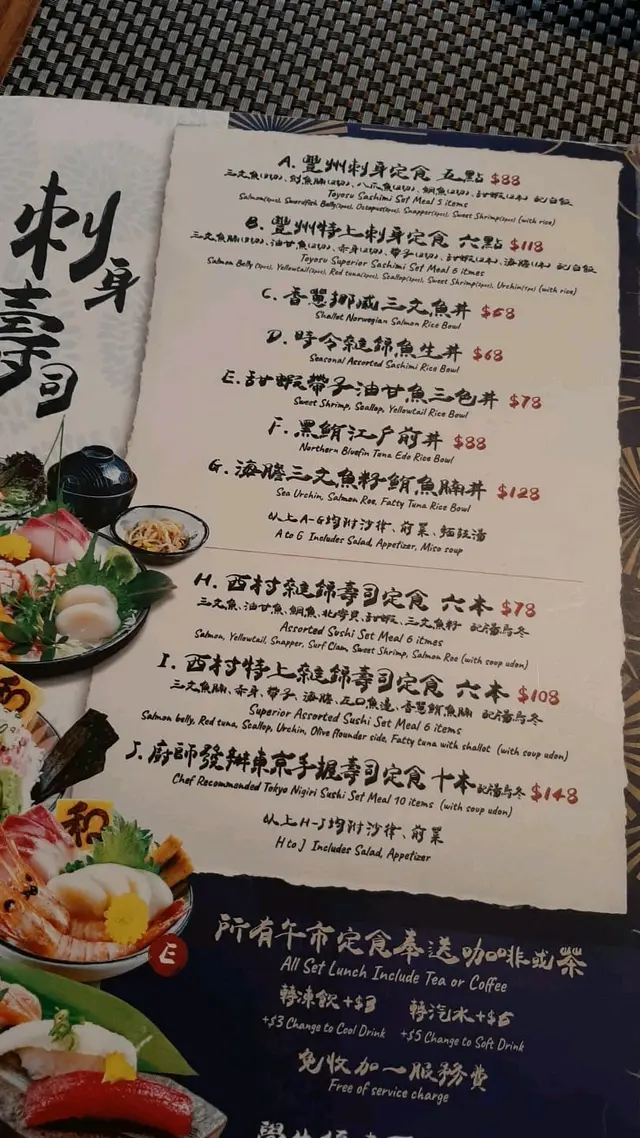 刺身
壽司
A. 豐州刺身定食 五點 $88
三文魚(2切), 劍魚腩(2切), 八爪魚(2切), 鯛魚(2切), 甜蝦(2本) 配白飯
Toyosu Sashimi Set Meal 5 items
Salmon(2pcs), Swordfish Belly(2pcs), Octopus(2pcs), Snapper(2pcs), Sweet Shrimp(2pcs) (with rice)
B. 豐州特上刺身定食 六點 $118
三文魚腩(2切), 油甘魚(2切), 赤身(2切), 帶子(2切), 甜蝦(2本), 海膽(1本) 配白飯
Toyosu Superior Sashimi Set Meal 6 itmes
Salmon Belly (2pcs), Yellowtail(2pcs), Red tuna(2pcs), Scallop(2pcs), Sweet Shrimp(2pcs), Urchin(1pc) (with rice)
C. 香蔥挪威三文魚丼 $68
Shallot Norwegian Salmon Rice Bowl
D. 時令雜錦魚生丼 $68
Seasonal Assorted Sashimi Rice Bowl
E. 甜蝦帶子油甘魚三色丼 $78
Sweet Shrimp, Scallop, Yellowtail Rice Bowl
F. 黑鮪江戶前丼 $88
Northern Bluefin Tuna Edo Rice Bowl
G. 海膽三文魚籽鮪魚腩丼 $128
Sea Urchin, Salmon Roe, Fatty Tuna Rice Bowl
以上A-G均附沙律、前菜、麵豉湯
A to G Includes Salad, Appetizer, Miso soup
H. 西村雜錦壽司定食 六本 $78
三文魚、油甘魚、鯛魚、北寄貝、甜蝦、三文魚籽 配湯烏冬
Assorted Sushi Set Meal 6 itmes
Salmon, Yellowtail, Snapper, Surf Clam, Sweet Shrimp, Salmon Roe (with soup udon)
I. 西村特上雜錦壽司定食 六本 $108
三文魚腩、赤身、帶子、海膽、左口魚邊、香蔥鮪魚腩 配湯烏冬
Superior Assorted Sushi Set Meal 6 items
Salmon belly, Red tuna, Scallop, Urchin, Olive flounder side, Fatty tuna with shallot (with soup udon)
J. 廚師發辦東京手握壽司定食 十本 配湯烏冬 $148
Chef Recommended Tokyo Nigiri Sushi Set Meal 10 items (with soup udon)
以上H-J均附沙律、前菜
H to J Includes Salad, Appetizer
和
和
E
所有午市定食奉送咖啡或茶
All Set Lunch Include Tea or Coffee
轉凍飲+$3 轉汽水+$5
+$3 Change to Cool Drink +$5 Change to Soft Drink
免收加一服務費
Free of service charge